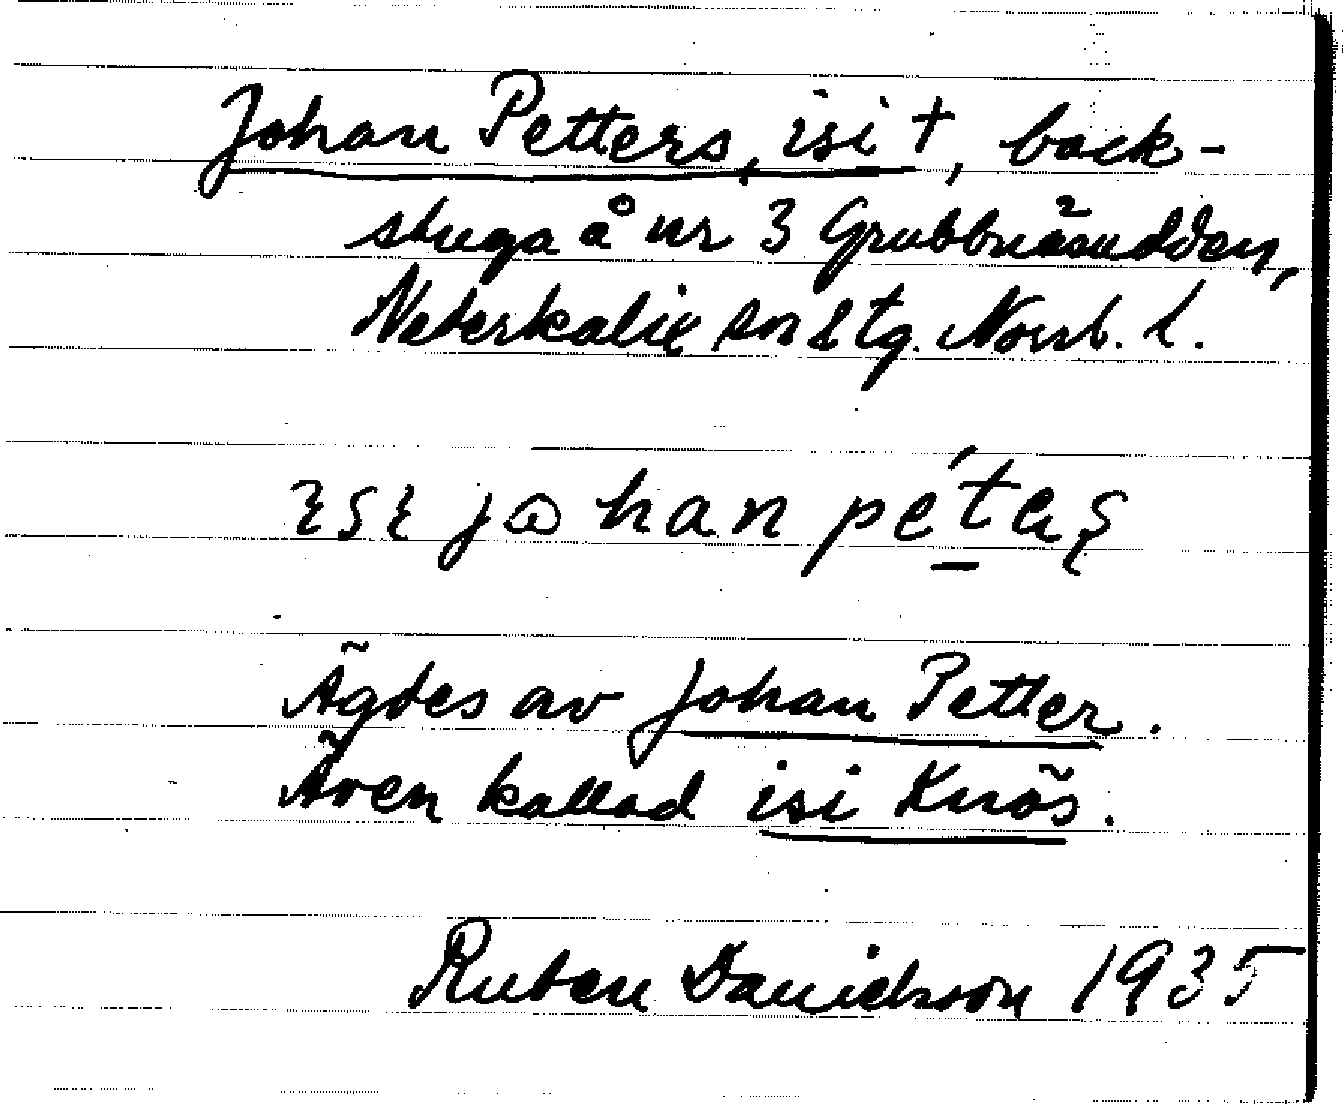 Johan Petters, isi †, back-
stuga å nr 3 Grubbnäsudden,
Nederkalix sn & tg. Norrb. l.
Ägdes av Johan Petter.
Även kallad isi Knös.
Ruben Danielsson 1935